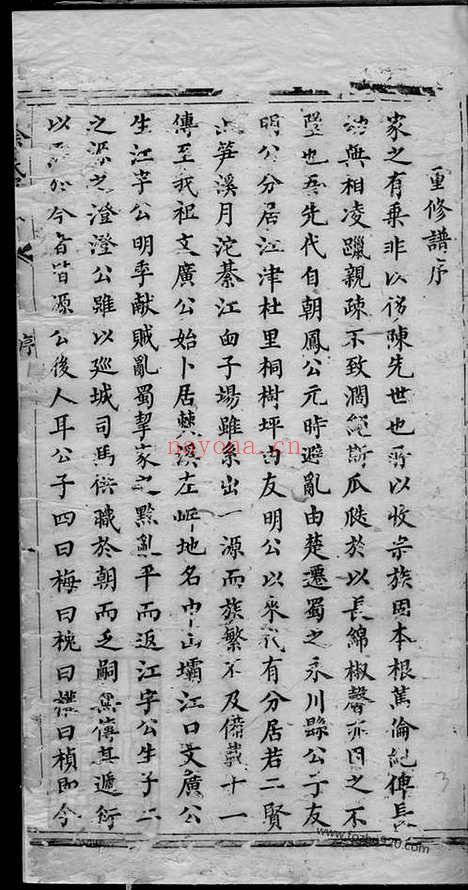 重修譜序
家之有乘非以侈陳先世也所以收宗族固本根篤倫紀俾長
幼無相凌躐親疎不致濶絕斯瓜瓞於以長綿椒馨亦因之不
墜也吾先代自朝鳳公元時避亂由楚遷蜀之永川縣公子友
明公分居江津杜里桐樹坪由友明公以來代有分居若二賢
筍溪月沱綦江面子場雖系出一源而族繁不及備載十一
傳至我祖文廣公始卜居僰溪左岸地名中山壩江口文廣公
生江字公明季献賊亂蜀挈家之黔亂平而返江字公生子二
之源之澄澄公雖以廵城司馬供職於朝而乏嗣無傳其遞衍
以至於今者皆源公後人耳公子四曰梅曰槐曰襟曰楨即今
序
nayona.cn
www.fozhu920.com
3